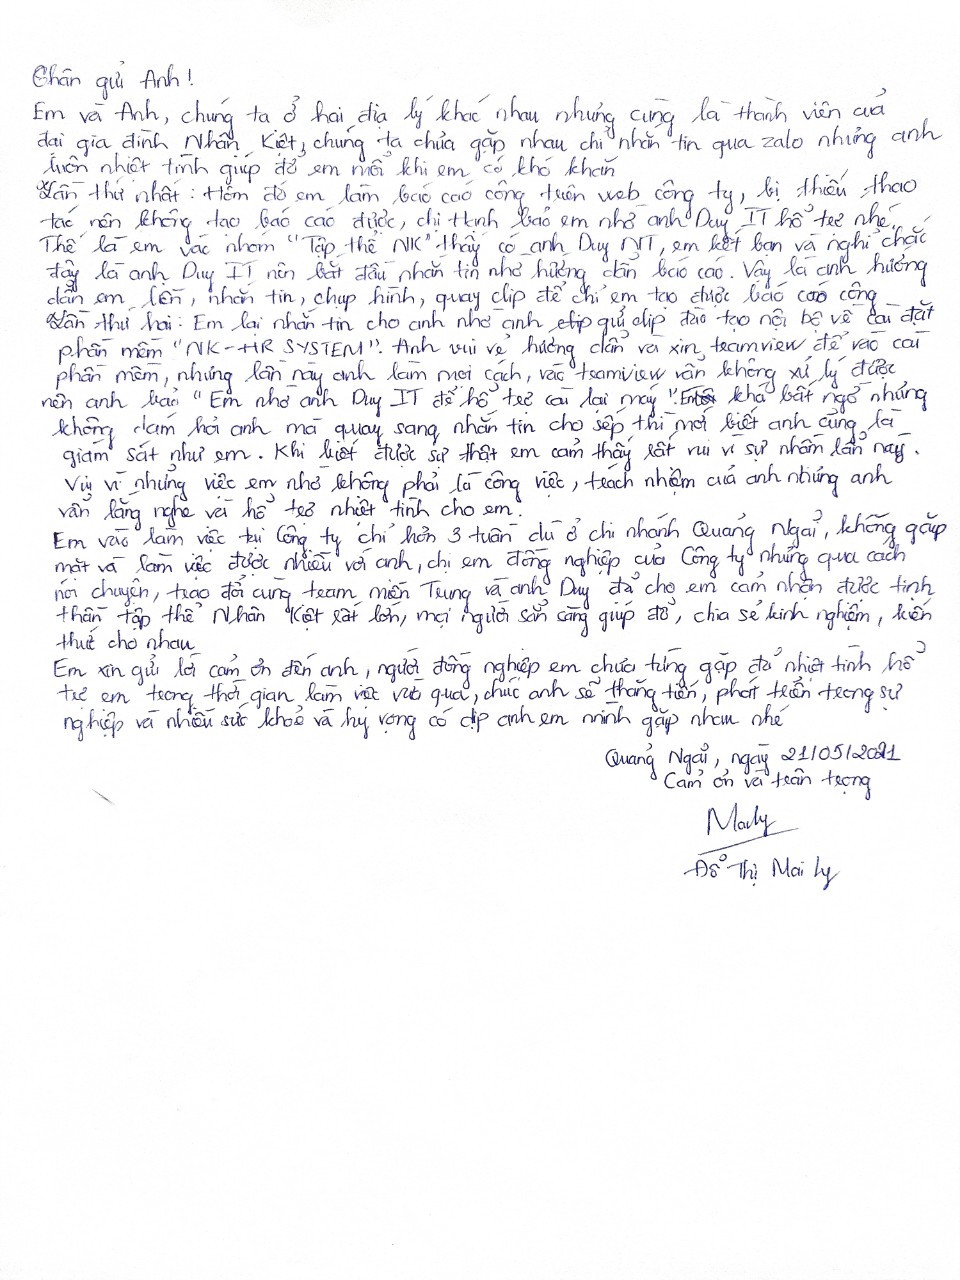 Thân gửi Anh!
Em và Anh, chúng ta ở hai địa lý khác nhau nhưng cùng là thành viên của
đại gia đình Nhân Kiệt, chúng ta chưa gặp nhau chỉ nhắn tin qua zalo nhưng anh
luôn nhiệt tình giúp đỡ em mỗi khi em có khó khăn
Lần thứ nhất: Hôm đó em làm báo cáo công trên web công ty, bị thiếu thao
tác nên không tạo báo cáo được, chị Hạnh bảo em nhờ anh Duy IT hổ trợ nhé.
Thế là em vào nhóm "Tập thể NK" thấy có anh Duy NT, em kết bạn và nghỉ chắc
đây là anh Duy IT nên bắt đầu nhắn tin nhờ hướng dẩn báo cáo. Vậy là anh hướng
dẩn em liền, nhắn tin, chụp hình, quay clip để chỉ em tạo được báo cáo công
Lần thứ hai: Em lại nhắn tin cho anh nhờ anh gửi clip đào tạo nội bộ về cài đặt
phần mềm "NK-HR SYSTEM". Anh vui vẻ hướng dẩn và xin teamview để vào cài
phần mềm, nhưng lần này anh làm mọi cách, vào teamview vẫn không xử lý được
nên anh bảo "Em nhờ anh Duy IT để hổ trợ cài lại máy". khá bất ngờ nhưng
không dám hỏi anh mà quay sang nhắn tin cho sếp thì mới biết anh cũng là
giám sát như em. Khi biết được sự thật em cảm thấy rất vui vì sự nhầm lẩn này.
Vui vì những việc em nhờ không phải là công việc, trách nhiệm của anh nhưng anh
vẫn lắng nghe và hổ trợ nhiệt tình cho em.
Em vào làm việc tại Công ty chỉ hơn 3 tuần dù ở chi nhánh Quảng Ngải, không gặp
mặt và làm việc được nhiều với anh, chị em đồng nghiệp của Công ty nhưng qua cách
nói chuyện, trao đổi cùng team miền Trung và anh Duy đả cho em cảm nhận được tinh
thần tập thể Nhân Kiệt rất lớn, mọi người sẳn sàng giúp đở, chia sẻ kinh nghiệm, kiến
thức cho nhau
Em xin gửi lời cảm ơn đến anh, người đồng nghiệp em chưa từng gặp đả nhiệt tình hổ
trợ em trong thời gian làm việc vừa qua, chúc anh sẽ thăng tiến, phát triển trong sự
nghiệp và nhiều sức khoẻ và hy vọng có dịp anh em mình gặp nhau nhé
Quảng Ngải, ngày 21/05/2021
Cảm ơn và trân trọng
Maily
Đổ Thị Mai Ly